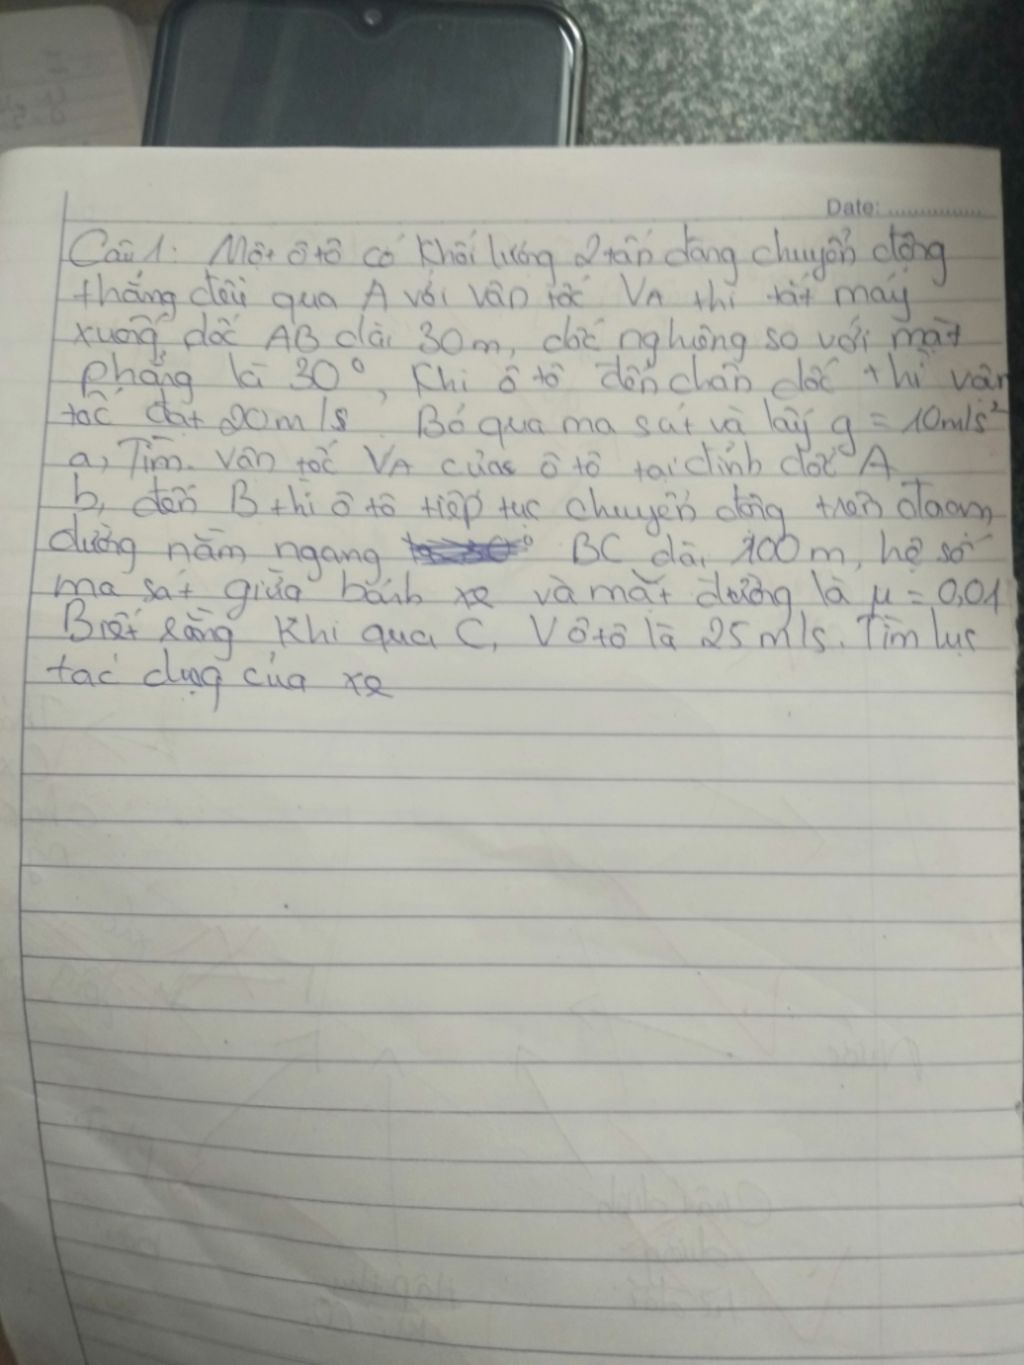 Date: ................
Câu 1: Một ô tô có khối lượng 2 tấn đang chuyển động
thẳng đều qua A với vận tốc VA thì tắt máy
xuống dốc AB dài 30m, dốc nghiêng so với mặt
phẳng là 30°, Khi ô tô đến chân dốc thì vận
tốc đạt 20m/s. Bỏ qua ma sát và lấy g = 10m/s²
a, Tìm vận tốc VA của ô tô tại đỉnh dốc A
b, đến B thì ô tô tiếp tục chuyển động trên đoạn
đường nằm ngang BC dài 100m, hệ số
ma sát giữa bánh xe và mặt đường là μ = 0,01
Biết rằng khi qua C, V ô tô là 25m/s. Tìm lực
tác dụng của xe